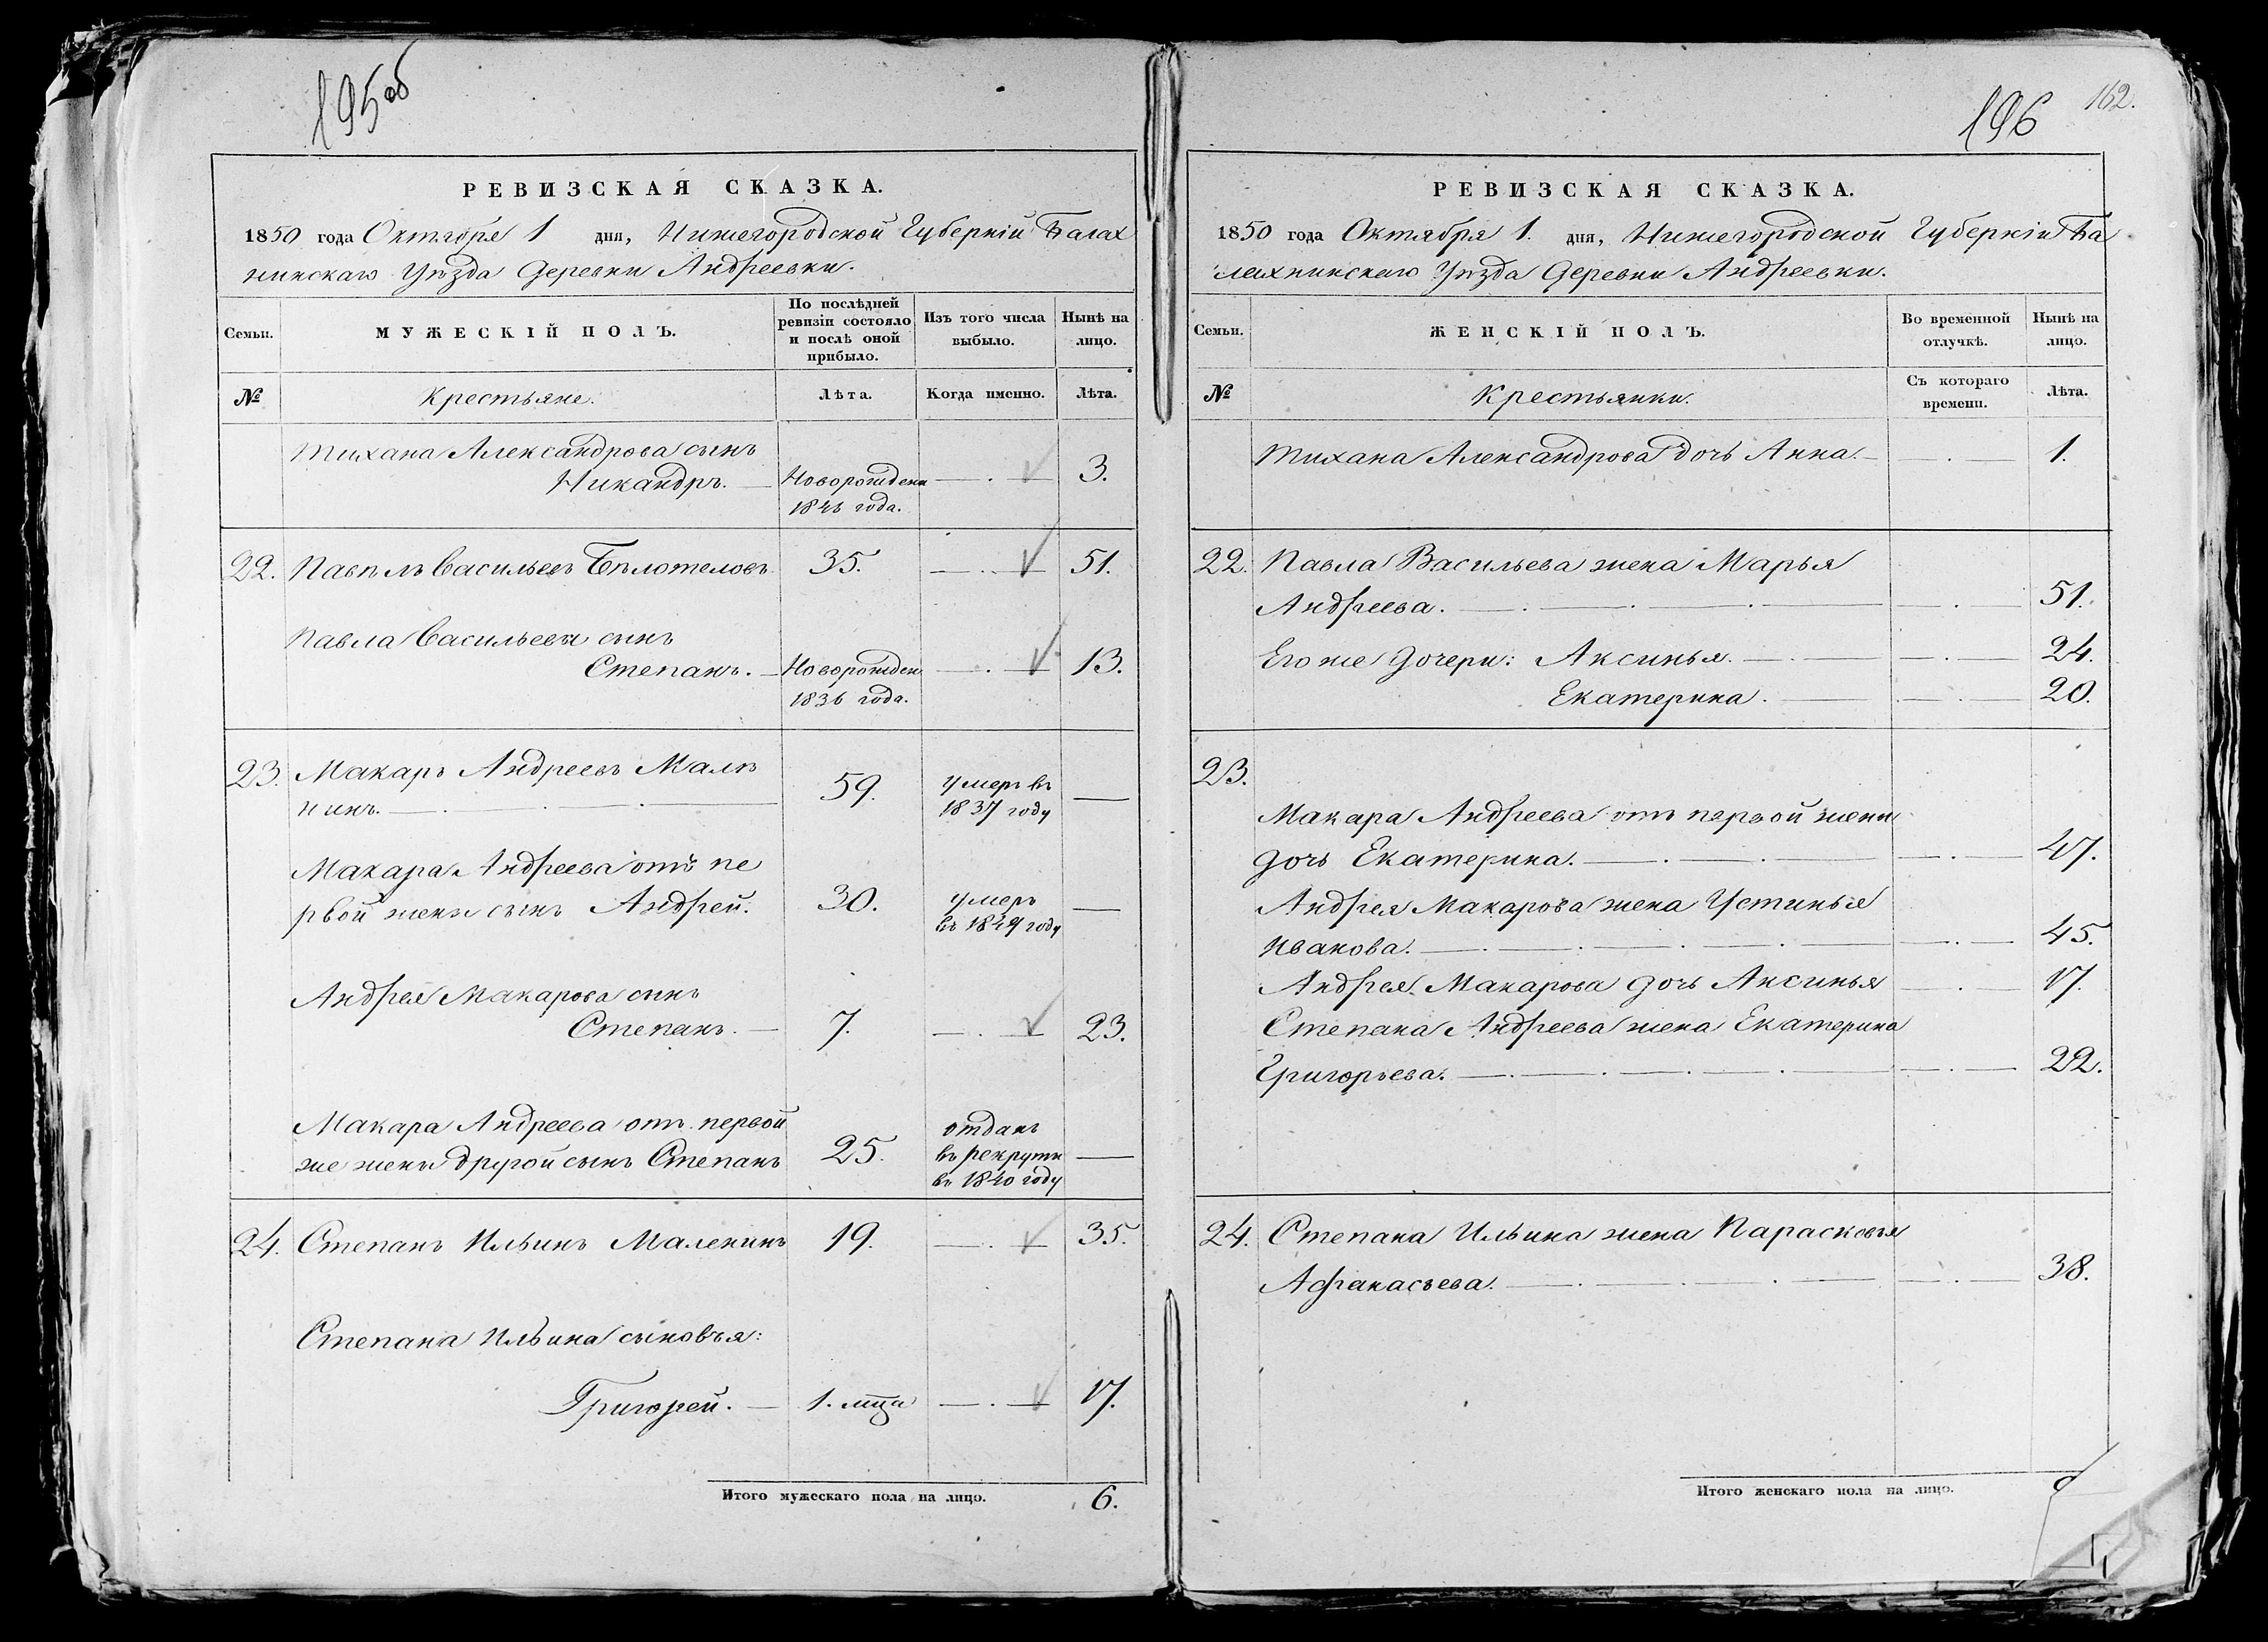 195об
РЕВИЗСКАЯ СКАЗКА.
1850 года Октября 1 дня, Нижегородской Губерніи Балах
нинскаго Уѣзда Деревни Андреевки.
Семьи.
МУЖЕСКІЙ ПОЛЪ.
По послѣдней ревизіи состояло и послѣ оной прибыло.
Изъ того числа выбыло.
Нынѣ на лицо.
№
Крестьяне.
Лѣта.
Когда именно.
Лѣта.
Тихана Александрова сынъ
Никандръ. Новорожден 3.
года.
22. Павелъ Васильевъ Бѣлотеловъ 35. 51.
Павла Васильева сынъ
Степанъ. Новорожден 13.
1836 года.
23. Макаръ Андреевъ Мале
нинъ. 59. умеръ въ
1837 году
Макара Андреева отъ пе
рвой жены сынъ Андрей. 30. умеръ
въ 1849 году
Андрея Макарова сынъ
Степанъ. 7. 23.
Макара Андреева отъ первой
же жены другой сынъ Степанъ 25. отданъ
въ рекруты
въ 1840 году
24. Степанъ Ильинъ Маленинъ 19. 35.
Степана Ильина сыновья:
Григорей. 1. мца 17.
Итого мужескаго пола на лицо. 6.
196 162.
РЕВИЗСКАЯ СКАЗКА.
1850 года Октября 1. дня, Нижегородской Губерніи Ба
лахнинскаго Уѣзда Деревни Андреевки.
Семьи.
ЖЕНСКІЙ ПОЛЪ.
Во временной отлучкѣ.
Нынѣ на лицо.
№
Крестьянки.
Съ котораго времени.
Лѣта.
Тихана Александрова дочь Анна. 1.
22. Павла Васильева жена Марья
Андреева. 51.
Его же дочери: Аксинья. 24.
Екатерина. 20.
23.
Макара Андреева отъ первой жены
дочь Екатерина. 47.
Андрея Макарова жена Устинья
Иванова. 45.
Андрея Макарова дочь Аксинья 17.
Степана Андреева жена Екатерина
Григорьева. 22.
24. Степана Ильина жена Парасковья
Афанасьева. 38.
Итого женскаго пола на лицо.